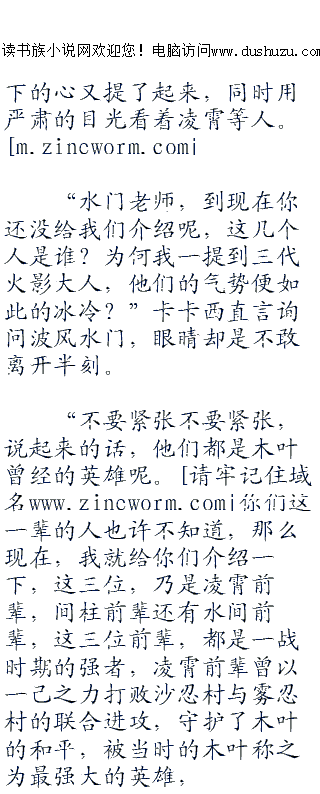 读书族小说网欢迎您！电脑访问www.dushuzu.com
下的心又提了起来，同时用
严肃的目光看着凌霄等人。
[m.zincworm.com|
“水门老师，到现在你
还没给我们介绍呢，这几个
人是谁？为何我一提到三代
火影大人，他们的气势便如
此的冰冷？”卡卡西直言询
问波风水门，眼睛却是不敢
离开半刻。
“不要紧张不要紧张，
说起来的话，他们都是木叶
曾经的英雄呢。[请牢记住域
名www.zincworm.com|你们这
一辈的人也许不知道，那么
现在，我就给你们介绍一
下，这三位，乃是凌霄前
辈，间柱前辈还有水间前
辈，这三位前辈，都是一战
时期的强者，凌霄前辈曾以
一己之力打败沙忍村与雾忍
村的联合进攻，守护了木叶
的和平，被当时的木叶称之
为最强大的英雄，